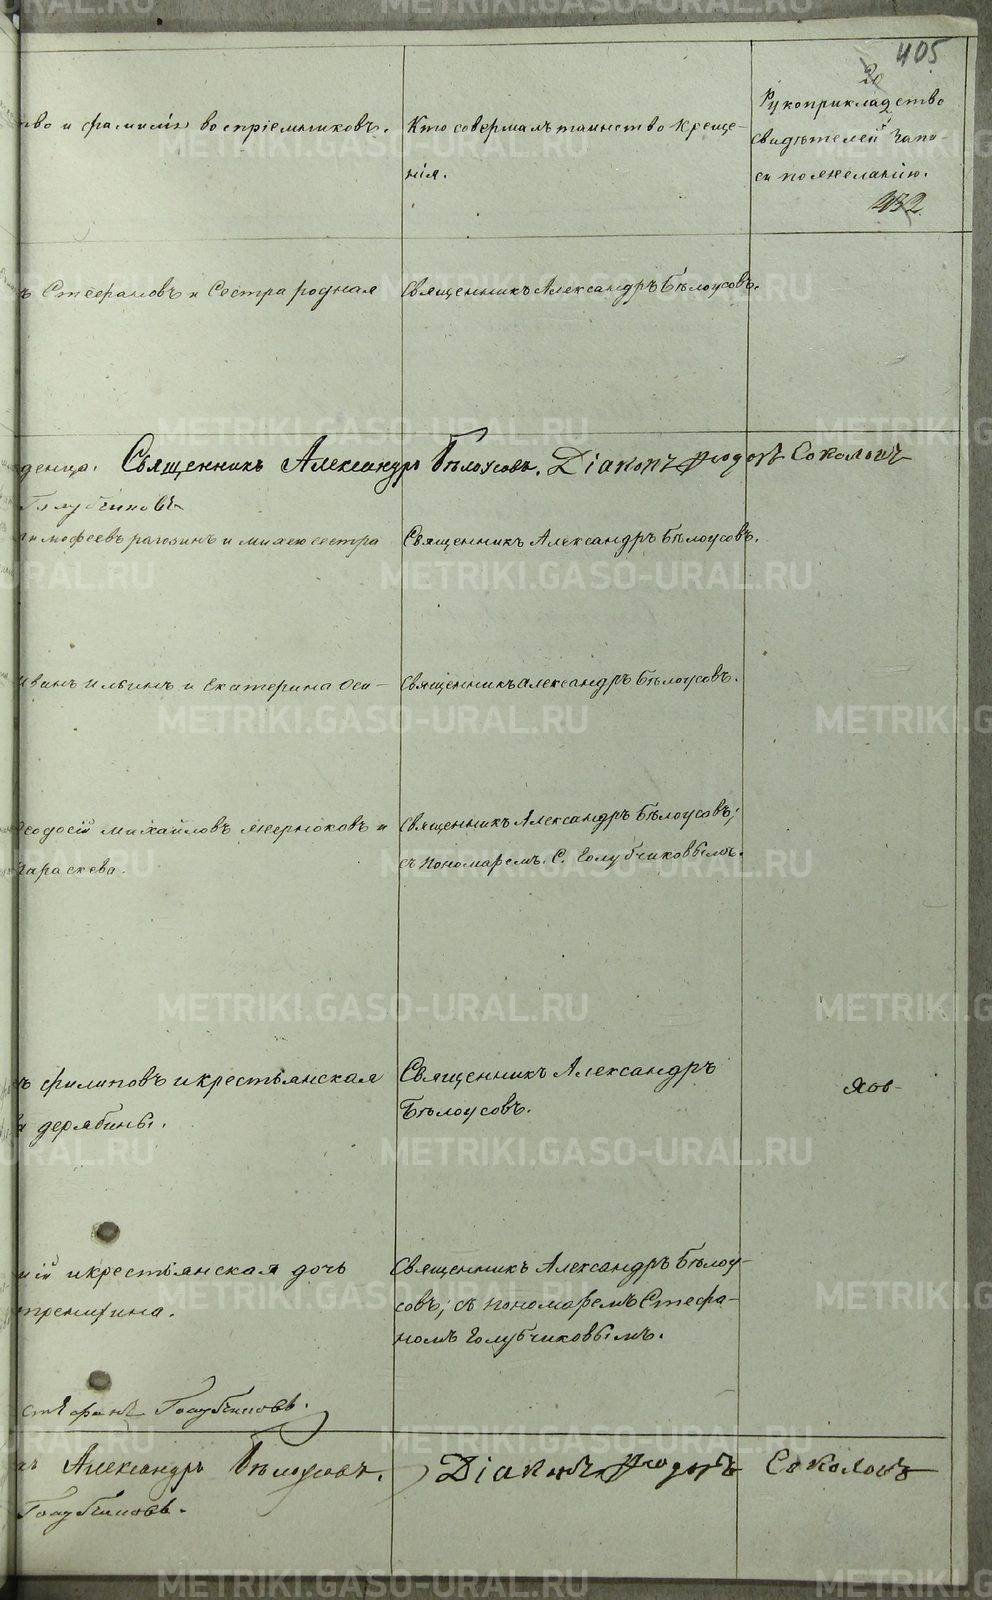 405
тво и фамилія воспріемниковъ.
Кто совершалъ таинство креще-
нія.
Рукоприкладство
свидѣтелей запи
си по желанію.
432
ъ Стефановъ и Сестра родная
Священникъ Александръ Бѣлоусовъ.
денца. Священникъ Александръ Бѣлоусовъ. Діаконъ Ѳеодоръ Соколовъ
Голубчиковъ
имофеевъ рагозинъ и сестра
Священникъ Александръ Бѣлоусовъ.
иванъ ильинъ и Екатерина Оси-
Священникъ Александръ Бѣлоусовъ.
еодосій михайловъ и
параскева.
Священникъ Александръ Бѣлоусовъ;
съ пономаремъ. С. Голубчиковымъ.
ъ филиповъ и крестьянская
дерябины.
Священникъ Александръ
Бѣлоусовъ.
ій и крестьянская дочь
Священникъ Александръ Бѣлоу-
совъ; съ пономаремъ Стефа-
номъ Голубчиковымъ.
стефанъ Голубчиковъ.
ъ Александръ Бѣлоусовъ. Діаконъ Ѳеодоръ Соколовъ
Голубчиковъ.
METRIKI.GASO-URAL.RU